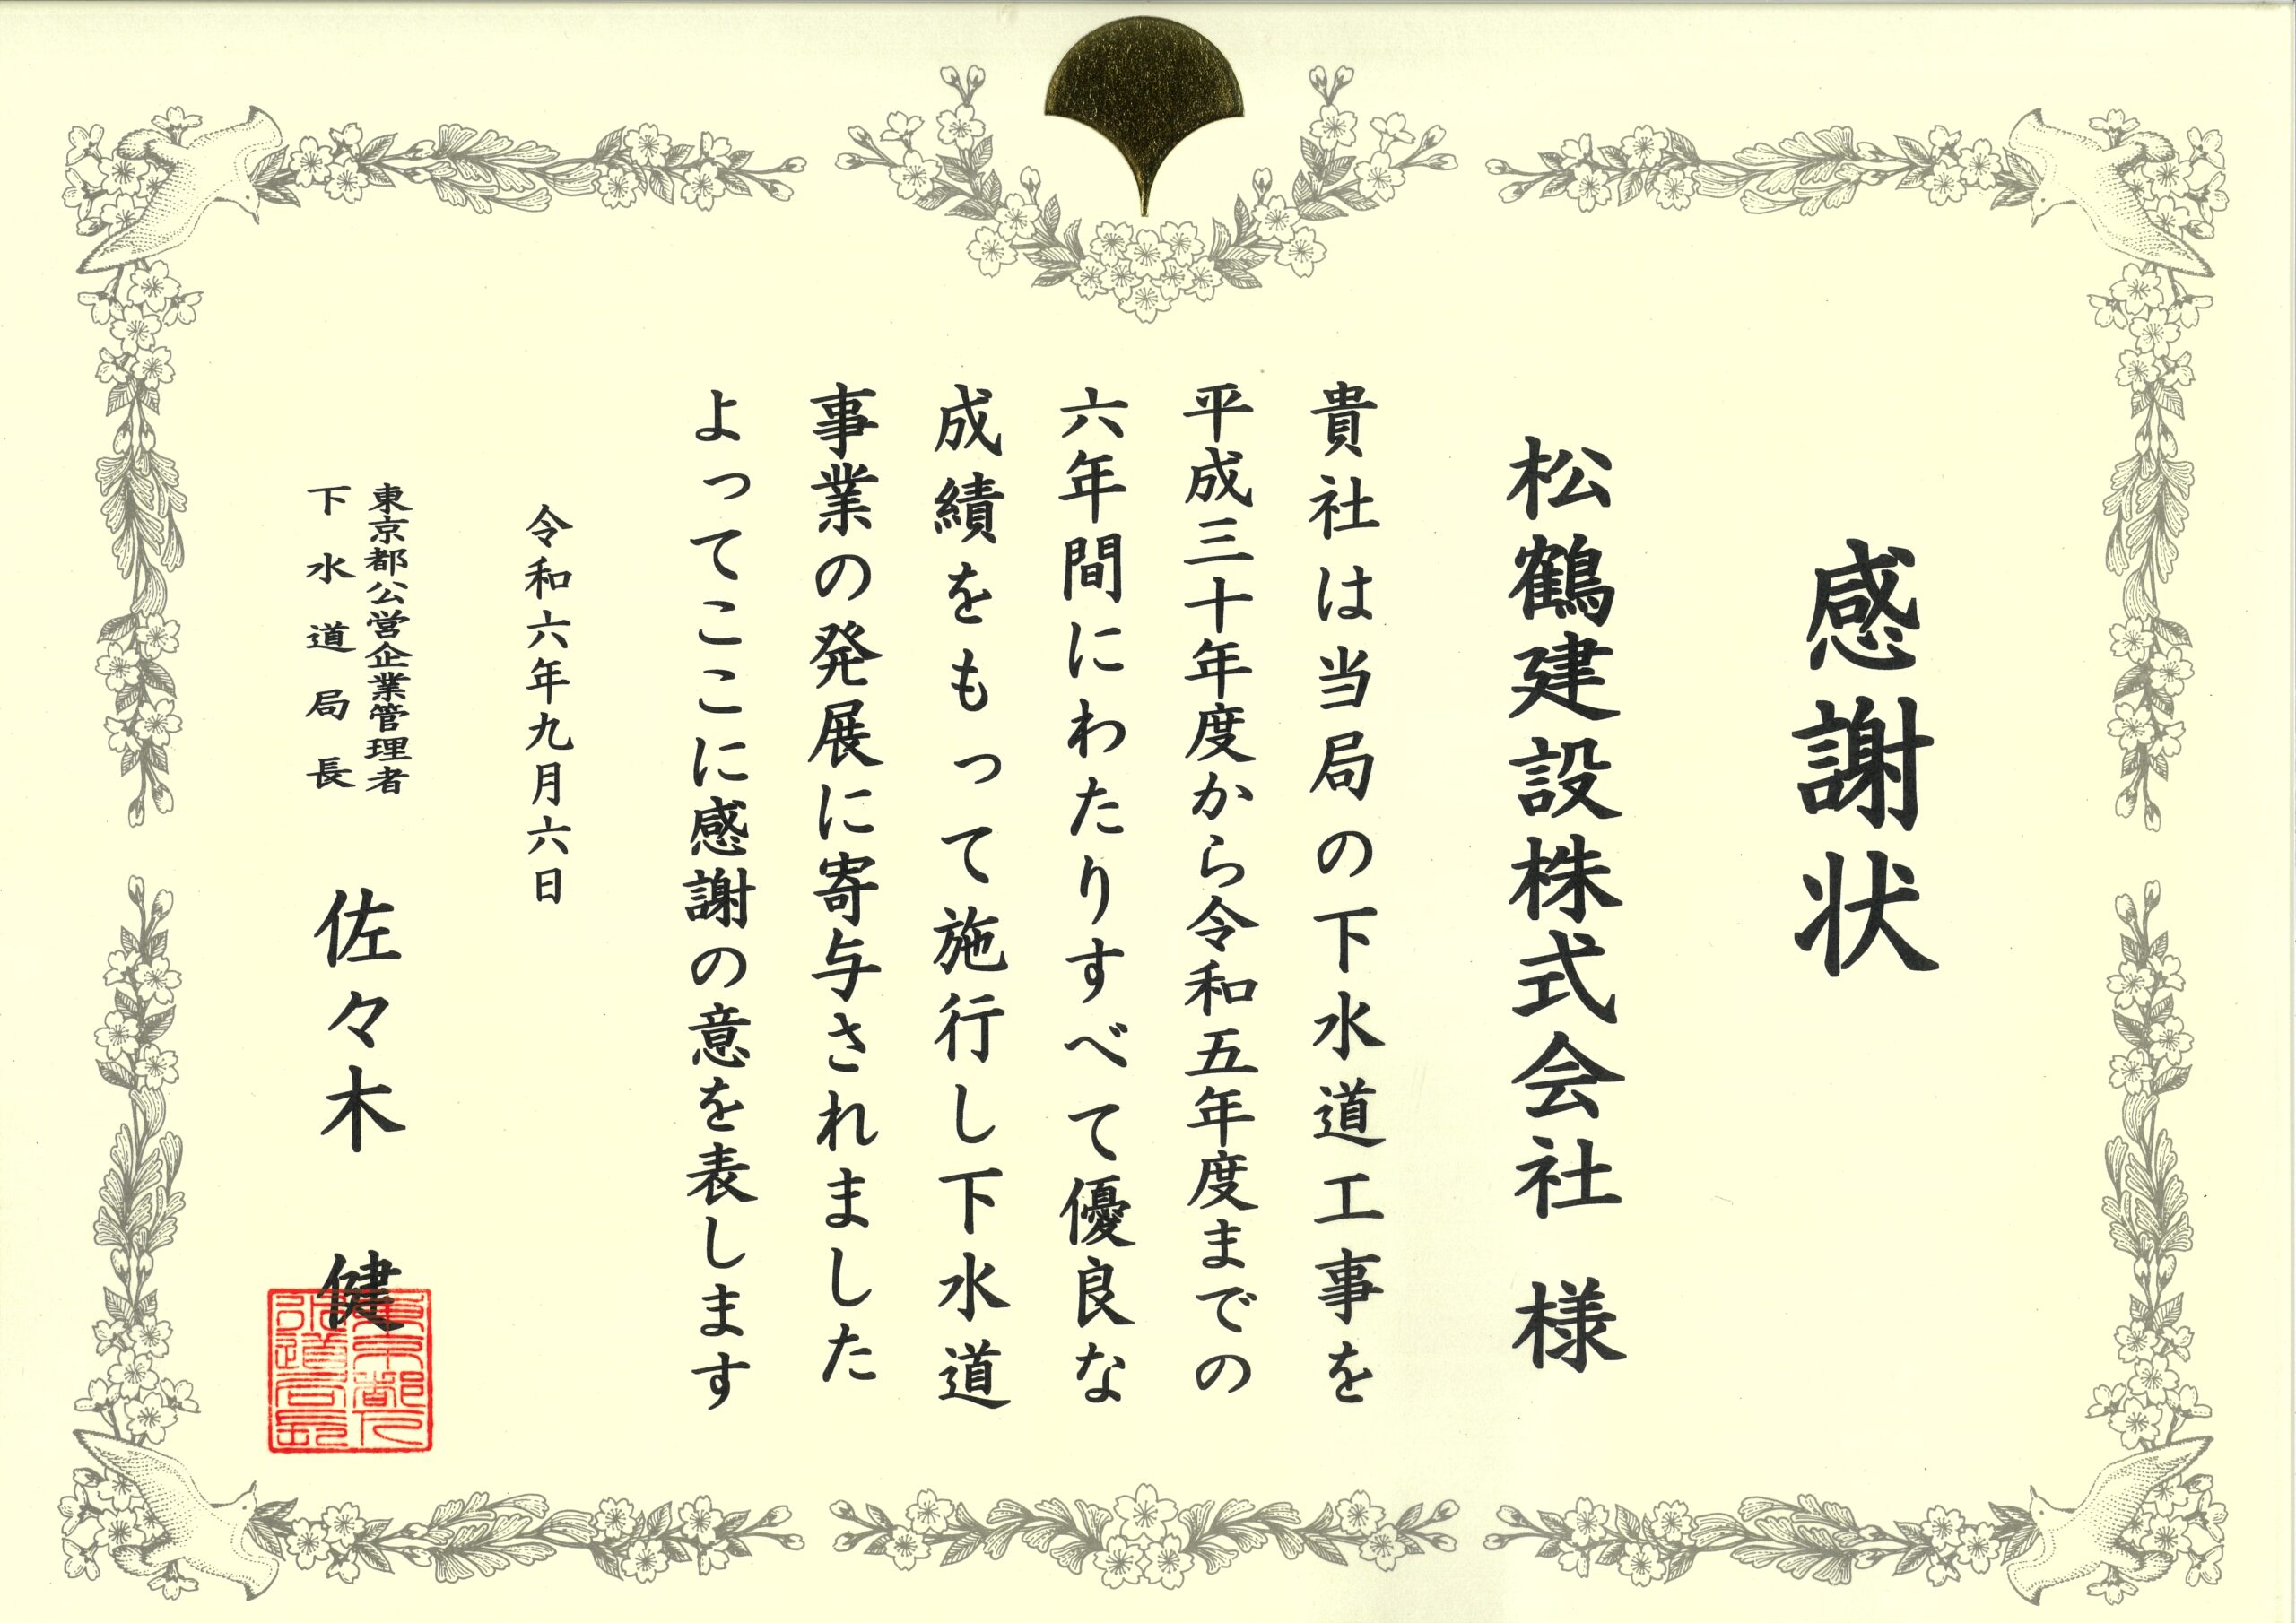 感謝状
松鶴建設株式会社 様
貴社は当局の下水道工事を
平成三十年度から令和五年度までの
六年間にわたりすべて優良な
成績をもって施行し下水道
事業の発展に寄与されました
よってここに感謝の意を表します
令和六年九月六日
東京都公営企業管理者
下水道局長
佐々木 健